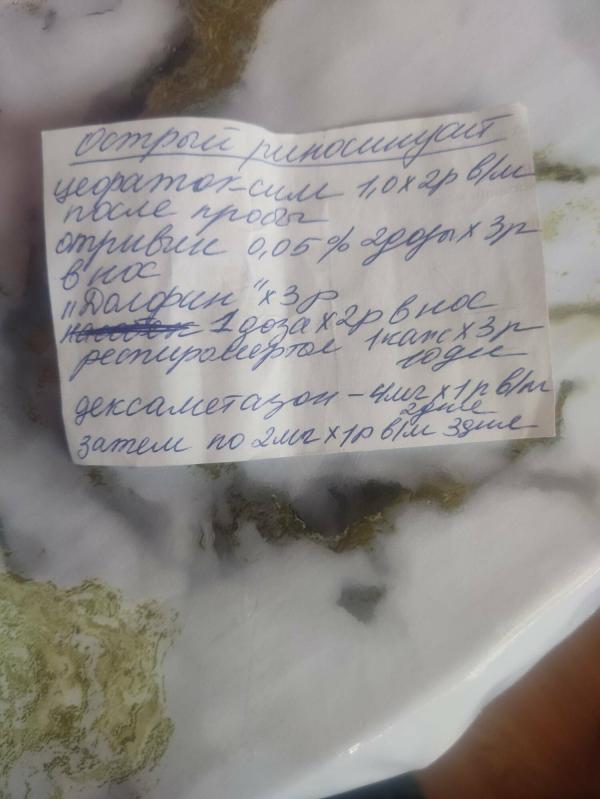 Острый риносинусит
цефотоксим 1,0 х 2р в/м
после пробы
отривин 0,05% 2дозы х 3р
в нос
"Долфин" х 3р
1 доза х 2р в нос
респиромиртол 1капс х 3р
10дн
дексаметазон - 4мг х 1р в/м
2дня
затем по 2мг х 1р в/м 3дня